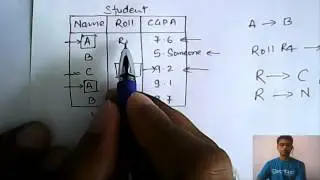 Student
Name Roll CGPA
A R1 7.6
B 5.Someone
C 9.2
A 9.1
B 7
A → B
Roll
R → C
R → N